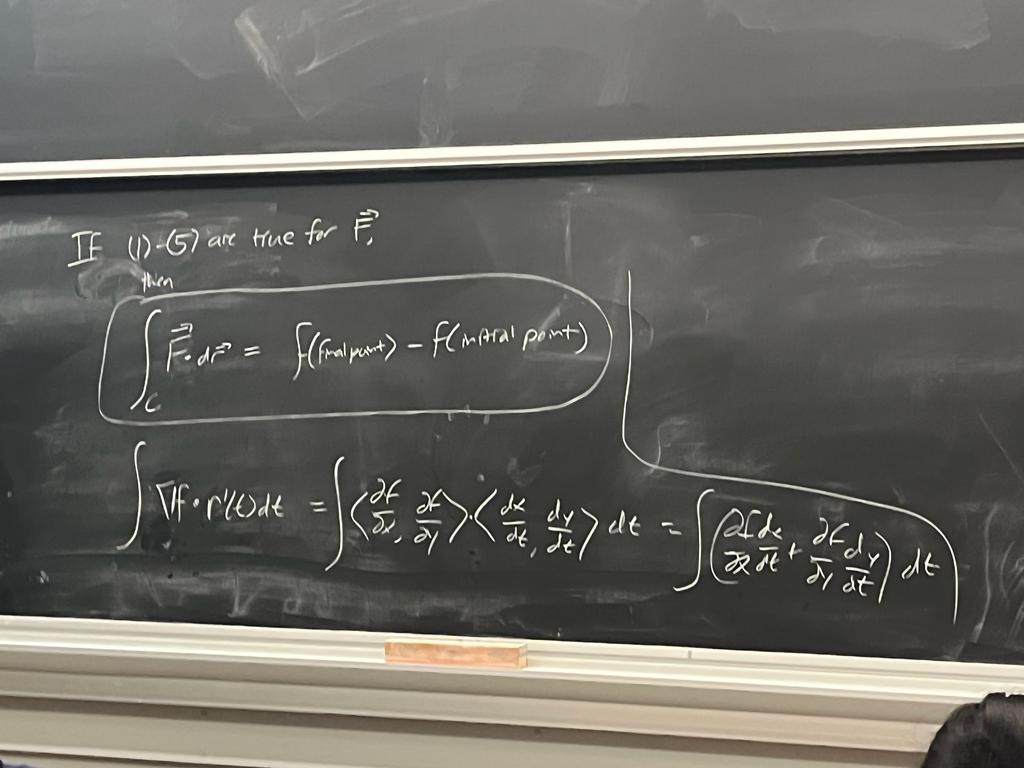 If (1)-(5) are true for F⃗,
then
∫_C F⃗ · dr⃗ = f(final point) − f(initial point)
∫ ∇f · r'(t) dt = ∫ ⟨∂f/∂x, ∂f/∂y⟩ · ⟨dx/dt, dy/dt⟩ dt = ∫ (∂f/∂x dx/dt + ∂f/∂y dy/dt) dt